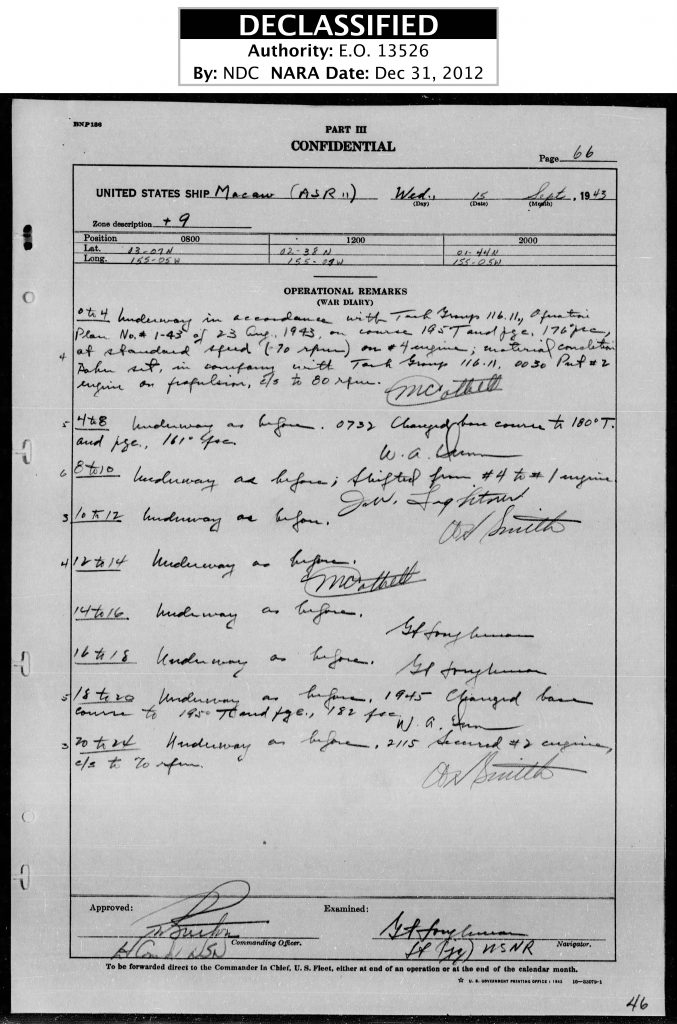 DECLASSIFIED
Authority: E.O. 13526
By: NDC NARA Date: Dec 31, 2012
BNP 186
PART III
CONFIDENTIAL
Page 66
UNITED STATES SHIP Macaw (ASR 11) Wed., 15 Sept, 1943
(Day) (Date) (Month)
Zone description + 9
Position 0800 1200 2000
Lat. 03-07N 02-38N 01-44N
Long. 155-05W 155-09W 155-05W
OPERATIONAL REMARKS
(WAR DIARY)
0 to 4 Underway in accordance with Task Group 116.11, Operation
Plan No. # 1-43 of 23 Aug. 1943, on course 195 T and pgc, 176° psc,
4 at standard speed (70 rpm) on #4 engine; material condition
Baker set, in company with Task Group 116.11. 0030 Put #2
engine on propulsion, c/s to 80 rpm.
5 4 to 8 Underway as before. 0732 Changed base course to 180° T.
and pgc., 161° psc.
W. A. Dunn
6 8 to 10 Underway as before; Shifted from #4 to #1 engine.
3 10 to 12 Underway as before.
Smith
4 12 to 14 Underway as before.
14 to 16 Underway as before.
16 to 18 Underway as before.
5 18 to 20 Underway as before, 1945 Changed base
course to 195° T and pgc., 182 psc
W. A. Dunn
3 20 to 24 Underway as before, 2115 Secured #2 engine,
c/s to 70 rpm.
Smith
Approved: Examined:
Commanding Officer. Navigator.
Lt (jg) USNR
To be forwarded direct to the Commander in Chief, U. S. Fleet, either at end of an operation or at the end of the calendar month.
☆ U. S. GOVERNMENT PRINTING OFFICE : 1942 16-33079-1
46